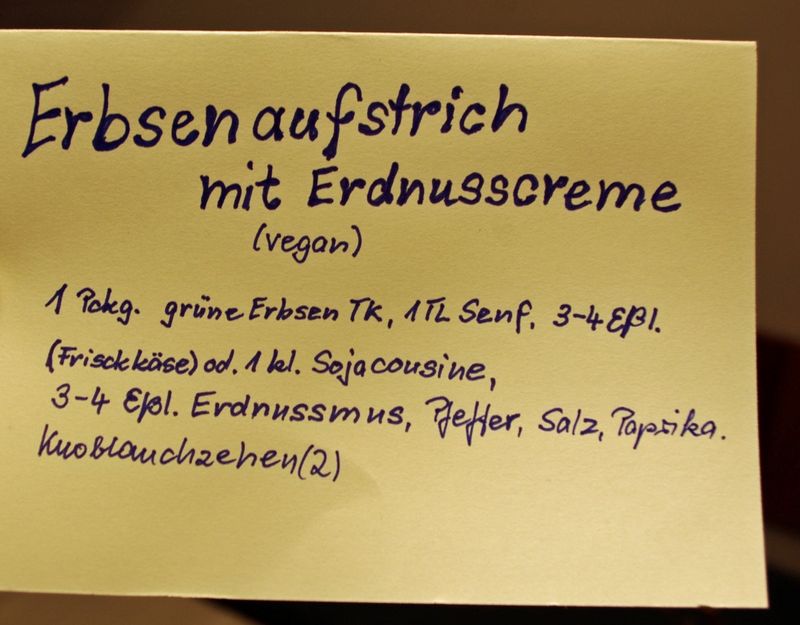 Erbsenaufstrich
mit Erdnusscreme
(vegan)
1 Pckg. grüne Erbsen TK, 1 TL Senf, 3-4 Eßl.
(Frischkäse) od. 1 kl. Sojacousine,
3-4 Eßl. Erdnussmus, Pfeffer, Salz, Paprika.
Knoblauchzehen (2)